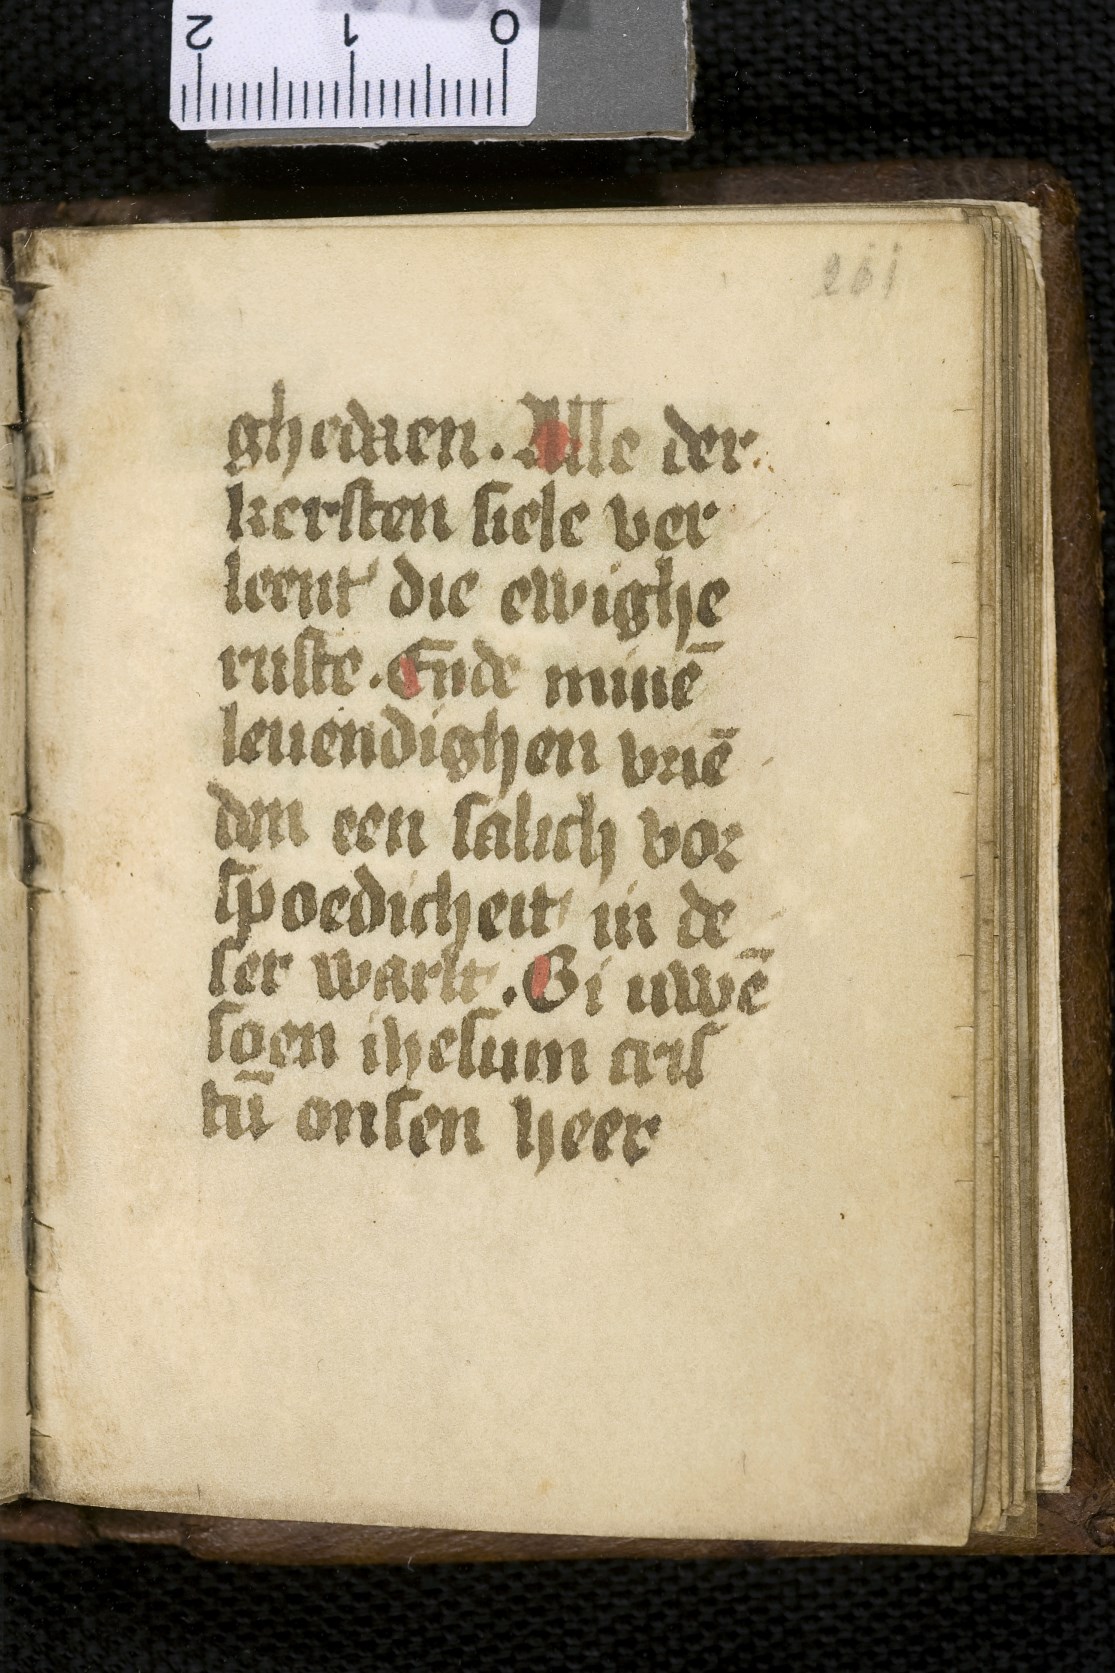 2 1 0
261
ghedaen. Alle der
kersten siele ver
leent die ewighe
ruste. Ende minē
leuendighen vriē
den een salich vor
spoedicheit in de
ser warlt. Bi uwē
soen ihesum cris
tū onsen heer